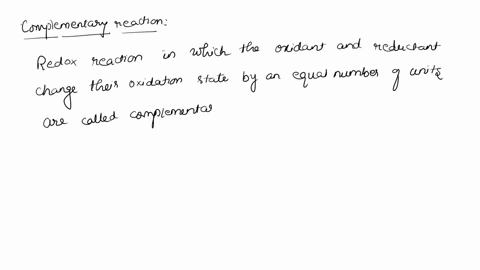 Complementary reaction:
Redox reaction in which the oxidant and reductant
change their oxidation state by an equal number of units
are called complementar